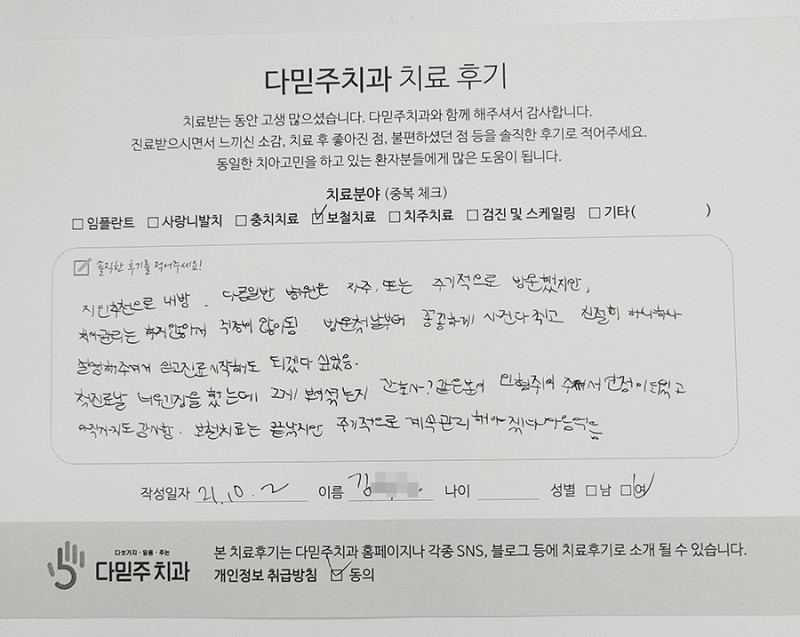 다믿주치과 치료 후기
치료받는 동안 고생 많으셨습니다. 다믿주치과와 함께 해주셔서 감사합니다.
진료받으시면서 느끼신 소감, 치료 후 좋아진 점, 불편하셨던 점 등을 솔직한 후기로 적어주세요.
동일한 치아고민을 하고 있는 환자분들에게 많은 도움이 됩니다.
치료분야 (중복 체크)
□ 임플란트 □ 사랑니발치 □ 충치치료 ☑ 보철치료 □ 치주치료 □ 검진 및 스케일링 □ 기타( )
솔직한 후기를 적어주세요!
지인추천으로 내방. 다른일반 병원은 자주, 또는 주기적으로 방문했지만,
치아관리는 하지않아서 걱정이 많이됨. 방문첫날부터 꼼꼼하게 사진다찍고 친절히 하나하나
설명해주셔서 믿고진료시작해도 되겠다 싶었음.
첫진료날 너무긴장을 했는데 그게 보여졌는지 간호사? 같은분이 인형주어 주셔서 안정이되었고
아직까지도 감사함. 보철치료는 끝났지만 주기적으로 계속관리해야 마음먹음
작성일자 21.10.2 이름 김 나이 성별 □남 ☑여
다섯가지·믿음·주는
다믿주치과
본 치료후기는 다믿주치과 홈페이지나 각종 SNS, 블로그 등에 치료후기로 소개 될 수 있습니다.
개인정보 취급방침 ☑ 동의